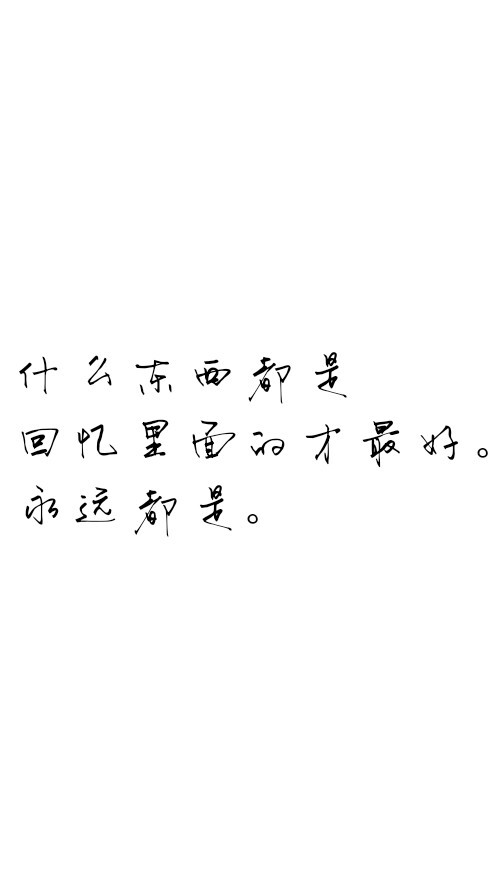 什么东西都是
回忆里面的才最好。
永远都是。